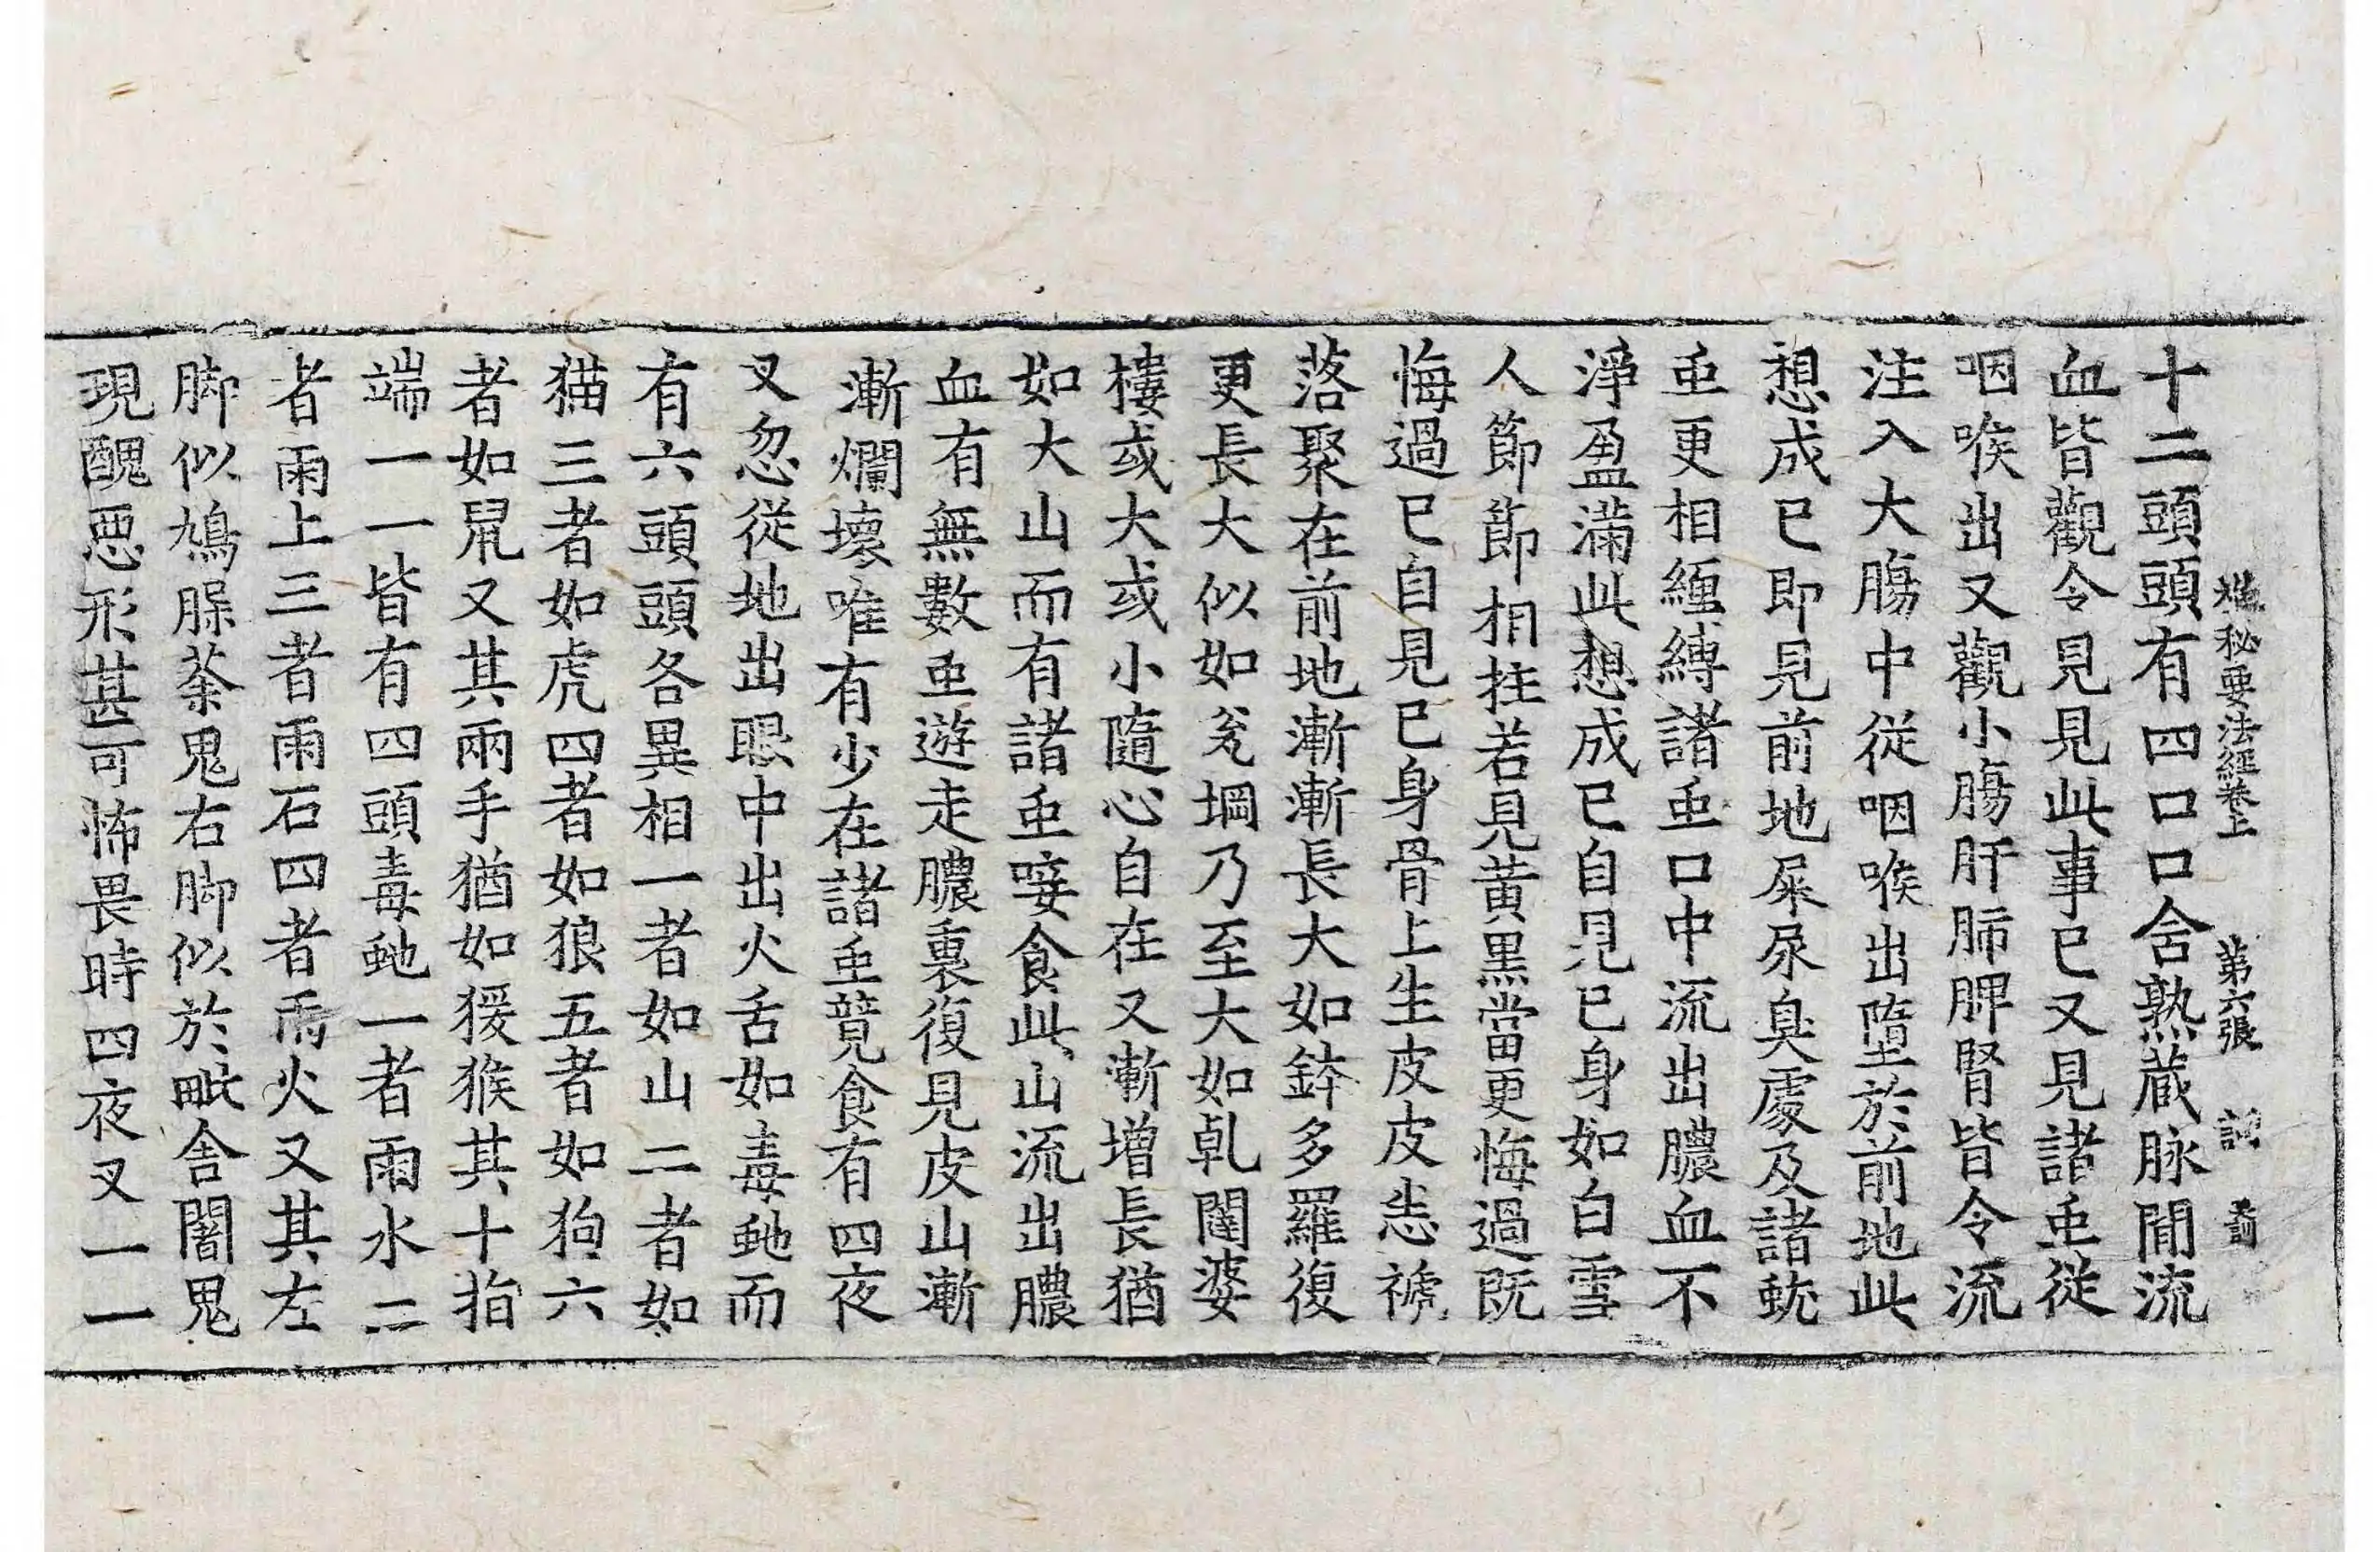 禪秘要法經卷上 第六張 訶
十二頭頭有四口口含熟蔵脉閒流
血皆觀令見見此事已又見諸䖝從
咽喉出又觀小膓肝肺脾腎皆令流
注入大膓中從咽喉出墮於前地此
想成已即見前地屎尿臭處及諸蚘
䖝更相纏縛諸䖝口中流出膿血不
淨盈滿此想成已自見己身如白雪
人節節相拄若見黃黑當更悔過既
悔過已自見己身骨上生皮皮悉褫
落聚在前地漸漸長大如鉢多羅復
更長大似如瓮堈乃至大如乹闥婆
樓或大或小隨心自在又漸增長猶
如大山而有諸䖝唼食此山流出膿
血有無數䖝遊走膿裏復見皮山漸
漸爛壞唯有少在諸䖝競食有四夜
叉忽從地出眼中出火舌如毒虵而
有六頭頭各異相一者如山二者如
猫三者如虎四者如狼五者如狗六
者如鼠又其兩手猶如猨猴其十指
端一一皆有四頭毒虵一者雨水二
者雨土三者雨石四者雨火又其左
脚似鳩脲荼鬼右脚似於毗舍闍鬼
現醜惡形甚可怖畏時四夜叉一一